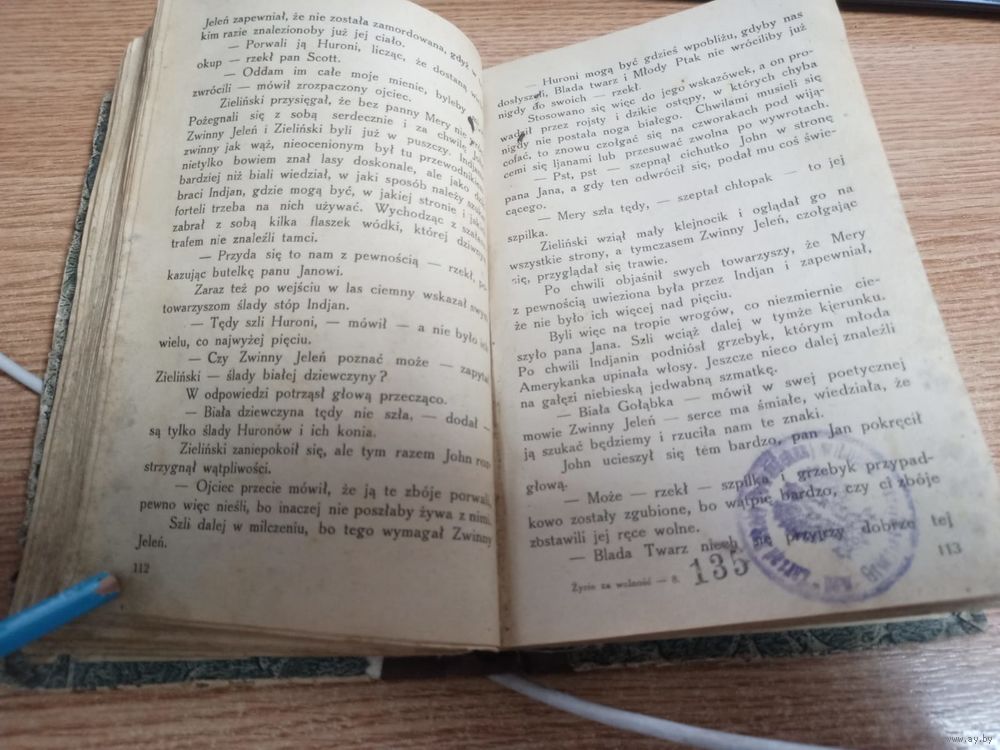 Jeleń zapewniał, że nie została zamordowana, gdyż w
kim razie znalezionoby już jej ciało.
— Porwali ją Huroni, licząc, że dostaną
okup — rzekł pan Scott.
— Oddam im całe moje mienie, byleby
zwrócili — mówił zrozpaczony ojciec.
Zieliński przysięgał, że bez panny Mery nie
Pożegnali się z sobą serdecznie i za chwilę
Zwinny Jeleń i Zieliński byli już w puszczy.
zwinny jak wąż, nieocenionym był tu przewodnikiem
nietylko bowiem znał lasy doskonale, ale jako
bardziej niż biali wiedział, w jaki sposób należy
braci Indjan, gdzie mogą być, w jakiej stronie i
forteli trzeba na nich używać. Wychodząc z
zabrał z sobą kilka flaszek wódki, której
trafem nie znaleźli tamci.
— Przyda się to nam z pewnością — rzekł,
kazując butelkę panu Janowi.
Zaraz też po wejściu w las ciemny wskazał
towarzyszom ślady stóp Indjan.
— Tędy szli Huroni, — mówił — a nie było ich
wielu, co najwyżej pięciu.
— Czy Zwinny Jeleń poznać może — zapytał
Zieliński — ślady białej dziewczyny?
W odpowiedzi potrząsł głową przecząco.
— Biała dziewczyna tędy nie szła, — dodał —
są tylko ślady Huronów i ich konia.
Zieliński zaniepokoił się, ale tym razem John
strzygnął wątpliwości.
— Ojciec przecie mówił, że ją te zbóje porwali,
pewno więc nieśli, bo inaczej nie poszłaby żywa z nimi.
Szli dalej w milczeniu, bo tego wymagał Zwinny
Jeleń.
112
— Huroni mogą być gdzieś wpobliżu, gdyby nas
dosłyszeli, Blada twarz i Młody Ptak nie wróciliby już
nigdy do swoich — rzekł.
Stosowano się więc do jego wskazówek, a on pro-
wadził przez rojsty i dzikie ostępy, w których chyba
nigdy nie postała noga białego. Chwilami musieli się
cofać, to znowu czołgać się na czworakach pod wiją-
cemi się ljanami lub przesuwać zwolna po wywrotach.
— Pst, pst — szepnął cichutko John w stronę
pana Jana, a gdy ten odwrócił się, podał mu coś świe-
cącego.
— Mery szła tędy, — szeptał chłopak — to jej
szpilka.
Zieliński wziął mały klejnocik i oglądał go na
wszystkie strony, a tymczasem Zwinny Jeleń, czołgając
się, przyglądał się trawie.
Po chwili objaśnił swych towarzyszy, że Mery
z pewnością uwieziona była przez Indjan i zapewniał,
że nie było ich więcej nad pięciu.
Byli więc na tropie wrogów, co niezmiernie cie-
szyło pana Jana. Szli wciąż dalej w tymże kierunku.
Po chwili Indjanin podniósł grzebyk, którym młoda
Amerykanka upinała włosy. Jeszcze nieco dalej znaleźli
na gałęzi niebieską jedwabną szmatkę.
— Biała Gołąbka — mówił w swej poetycznej
mowie Zwinny Jeleń — serce ma śmiałe, wiedziała, że
ją szukać będziemy i rzuciła nam te znaki.
John ucieszył się tém bardzo, pan Jan pokręcił
głową.
— Może — rzekł — szpilka i grzebyk przypad-
kowo zostały zgubione, bo wątpię bardzo, czy ci zbóje
zbstawili jej ręce wolne.
— Blada Twarz niech się przyjrzy dobrze tej
Życie za wolność — 8.
135
113
www.ay.by